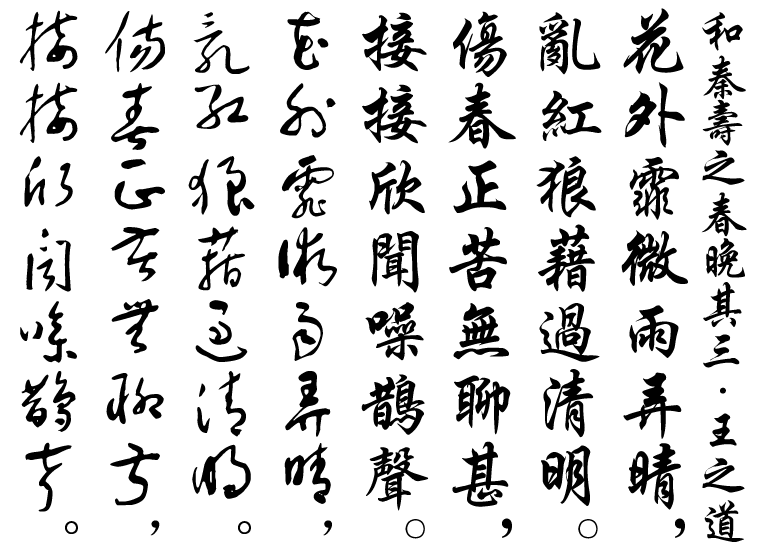 和秦壽之春晚其三·王之道
花外霏微雨弄晴，
亂紅狼藉過清明。
傷春正苦無聊甚，
接接欣聞噪鵲聲。
花外霏微雨弄晴，
亂紅狼藉過清明。
傷春正苦無聊甚，
接接欣聞噪鵲聲。